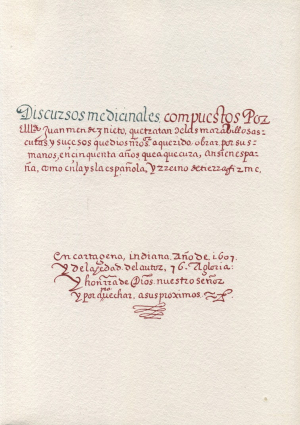 Discursos medicinales, compuestos Por
Juan mendez nieto, que tratan de las marabillosas
curas, y sucesos que dios nro sr a querido, obrar, por sus
manos, en cinquenta años que a que cura, ansi en espa-
ña, como en la ysla española, y rreino de tierra
En cartagena, indiana. Año de. 1607.
Y de la edad. del autor, 76. A gloria:
Y honrra de Dios. nuestro señor
y por quechar, a sus proximos.